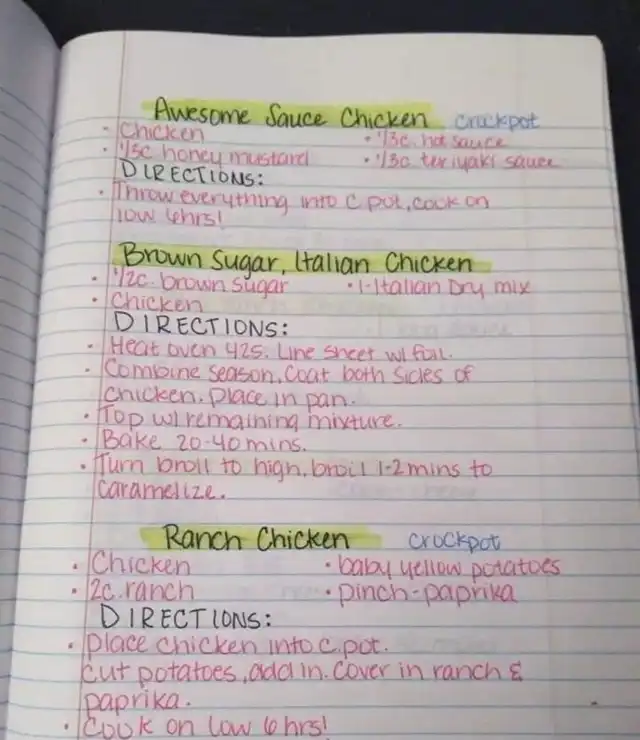 Awesome Sauce Chicken crockpot
• Chicken • 1/3c. hot sauce
• 1/3c honey mustard • 1/3c teriyaki sauce
DIRECTIONS:
• Throw everything into C pot, cook on
low 6hrs!
Brown Sugar, Italian Chicken
• 1/2c. brown sugar • 1-Italian Dry mix
• Chicken
DIRECTIONS:
• Heat oven 425. Line sheet w/ foil.
• Combine season. Coat both sides of
chicken. Place in pan.
• Top w/ remaining mixture.
• Bake 20-40 mins.
• Turn broil to high, broil 1-2 mins to
caramelize.
Ranch Chicken crockpot
• Chicken • baby yellow potatoes
• 2c. ranch • pinch-paprika
DIRECTIONS:
• Place chicken into C.pot.
Cut potatoes, add in. Cover in ranch &
paprika.
• Cook on low 6 hrs!